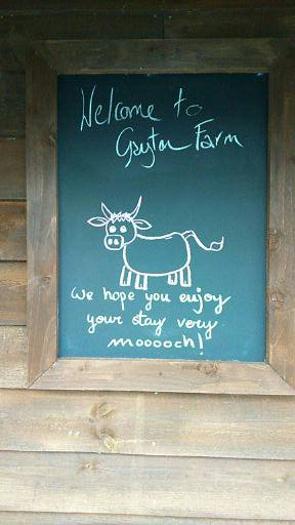 Welcome to
Gayton Farm
we hope you enjoy
your stay very
mooooch!